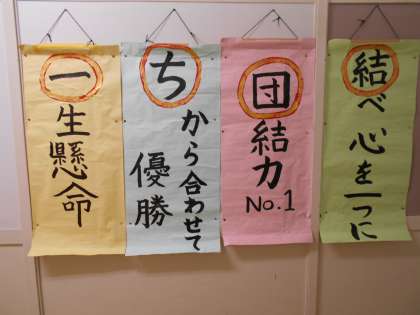 一生懸命
ちから合わせて
優勝
団結力No.1
結べ心を一つに